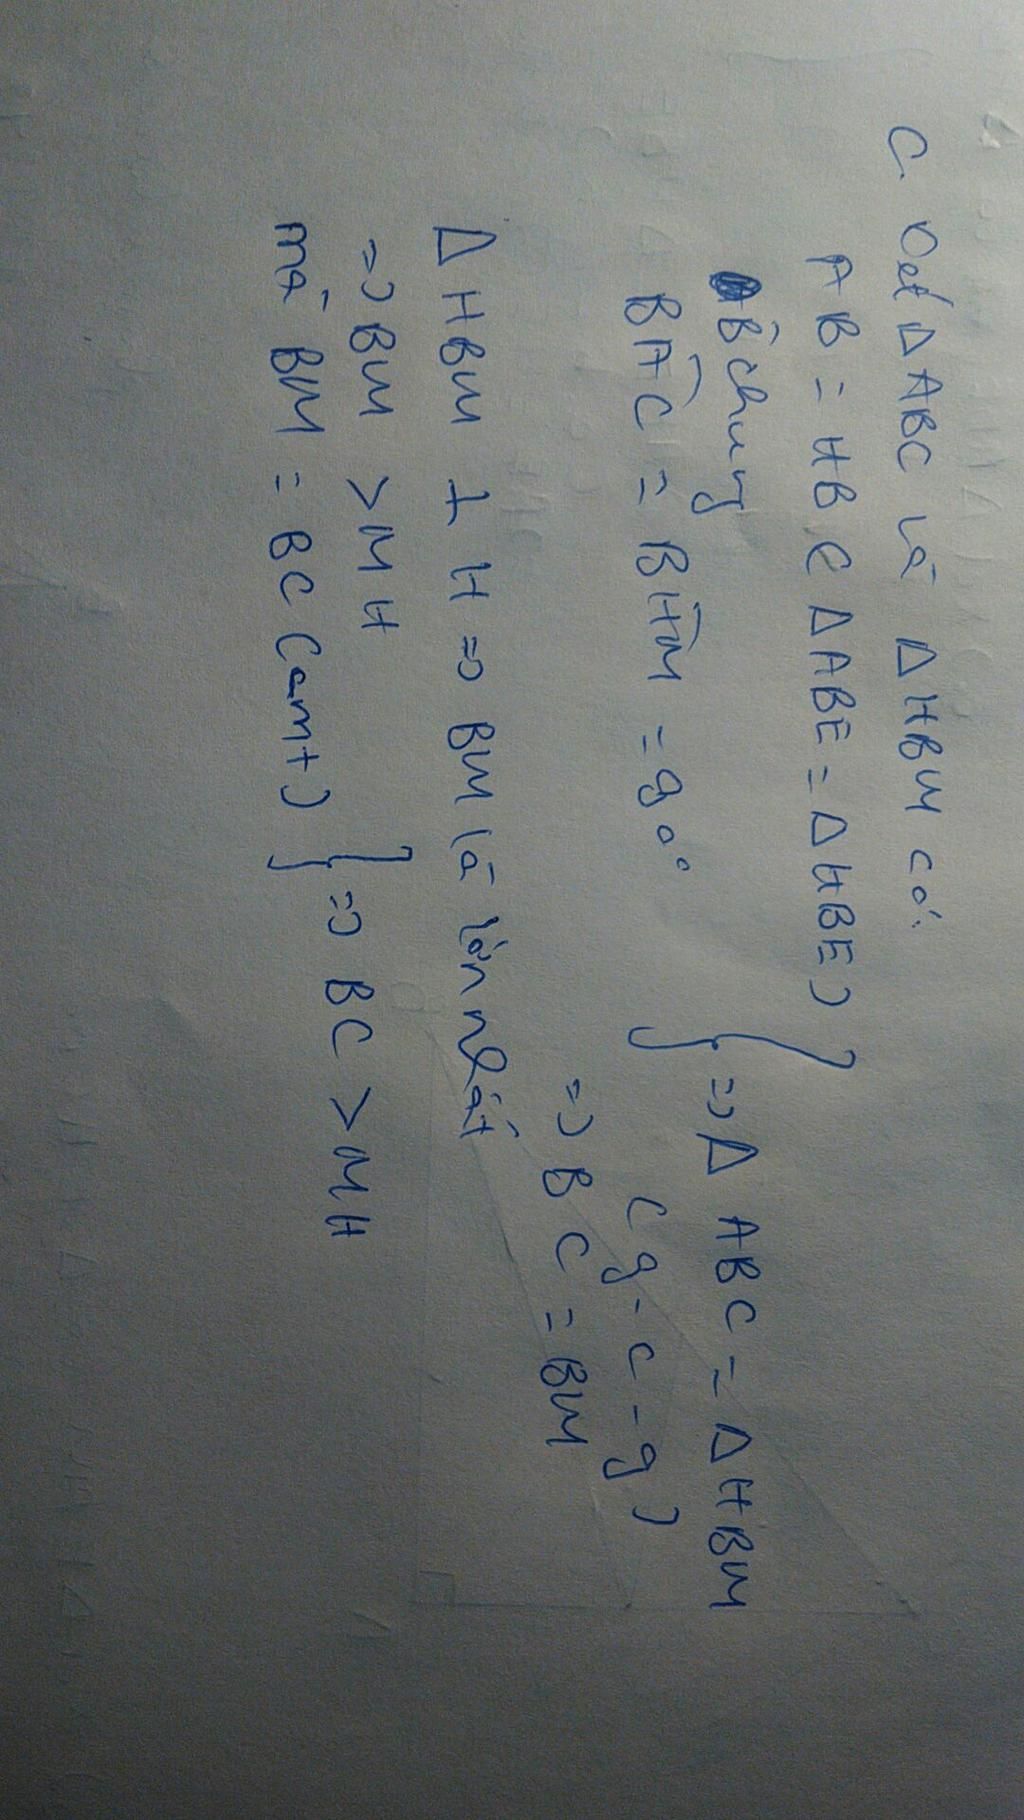 C. Xét Δ ABC và Δ HBM có:
AB = HB (ΔABE = ΔHBE)
B̂ chung
BÂC = BĤM = 90°
} => Δ ABC = Δ HBM
(g-c-g)
=> BC = BM
Δ HBM ⊥ H => BM là lớn nhất
=> BM > MH
mà BM = BC (cmt)
} => BC > MH